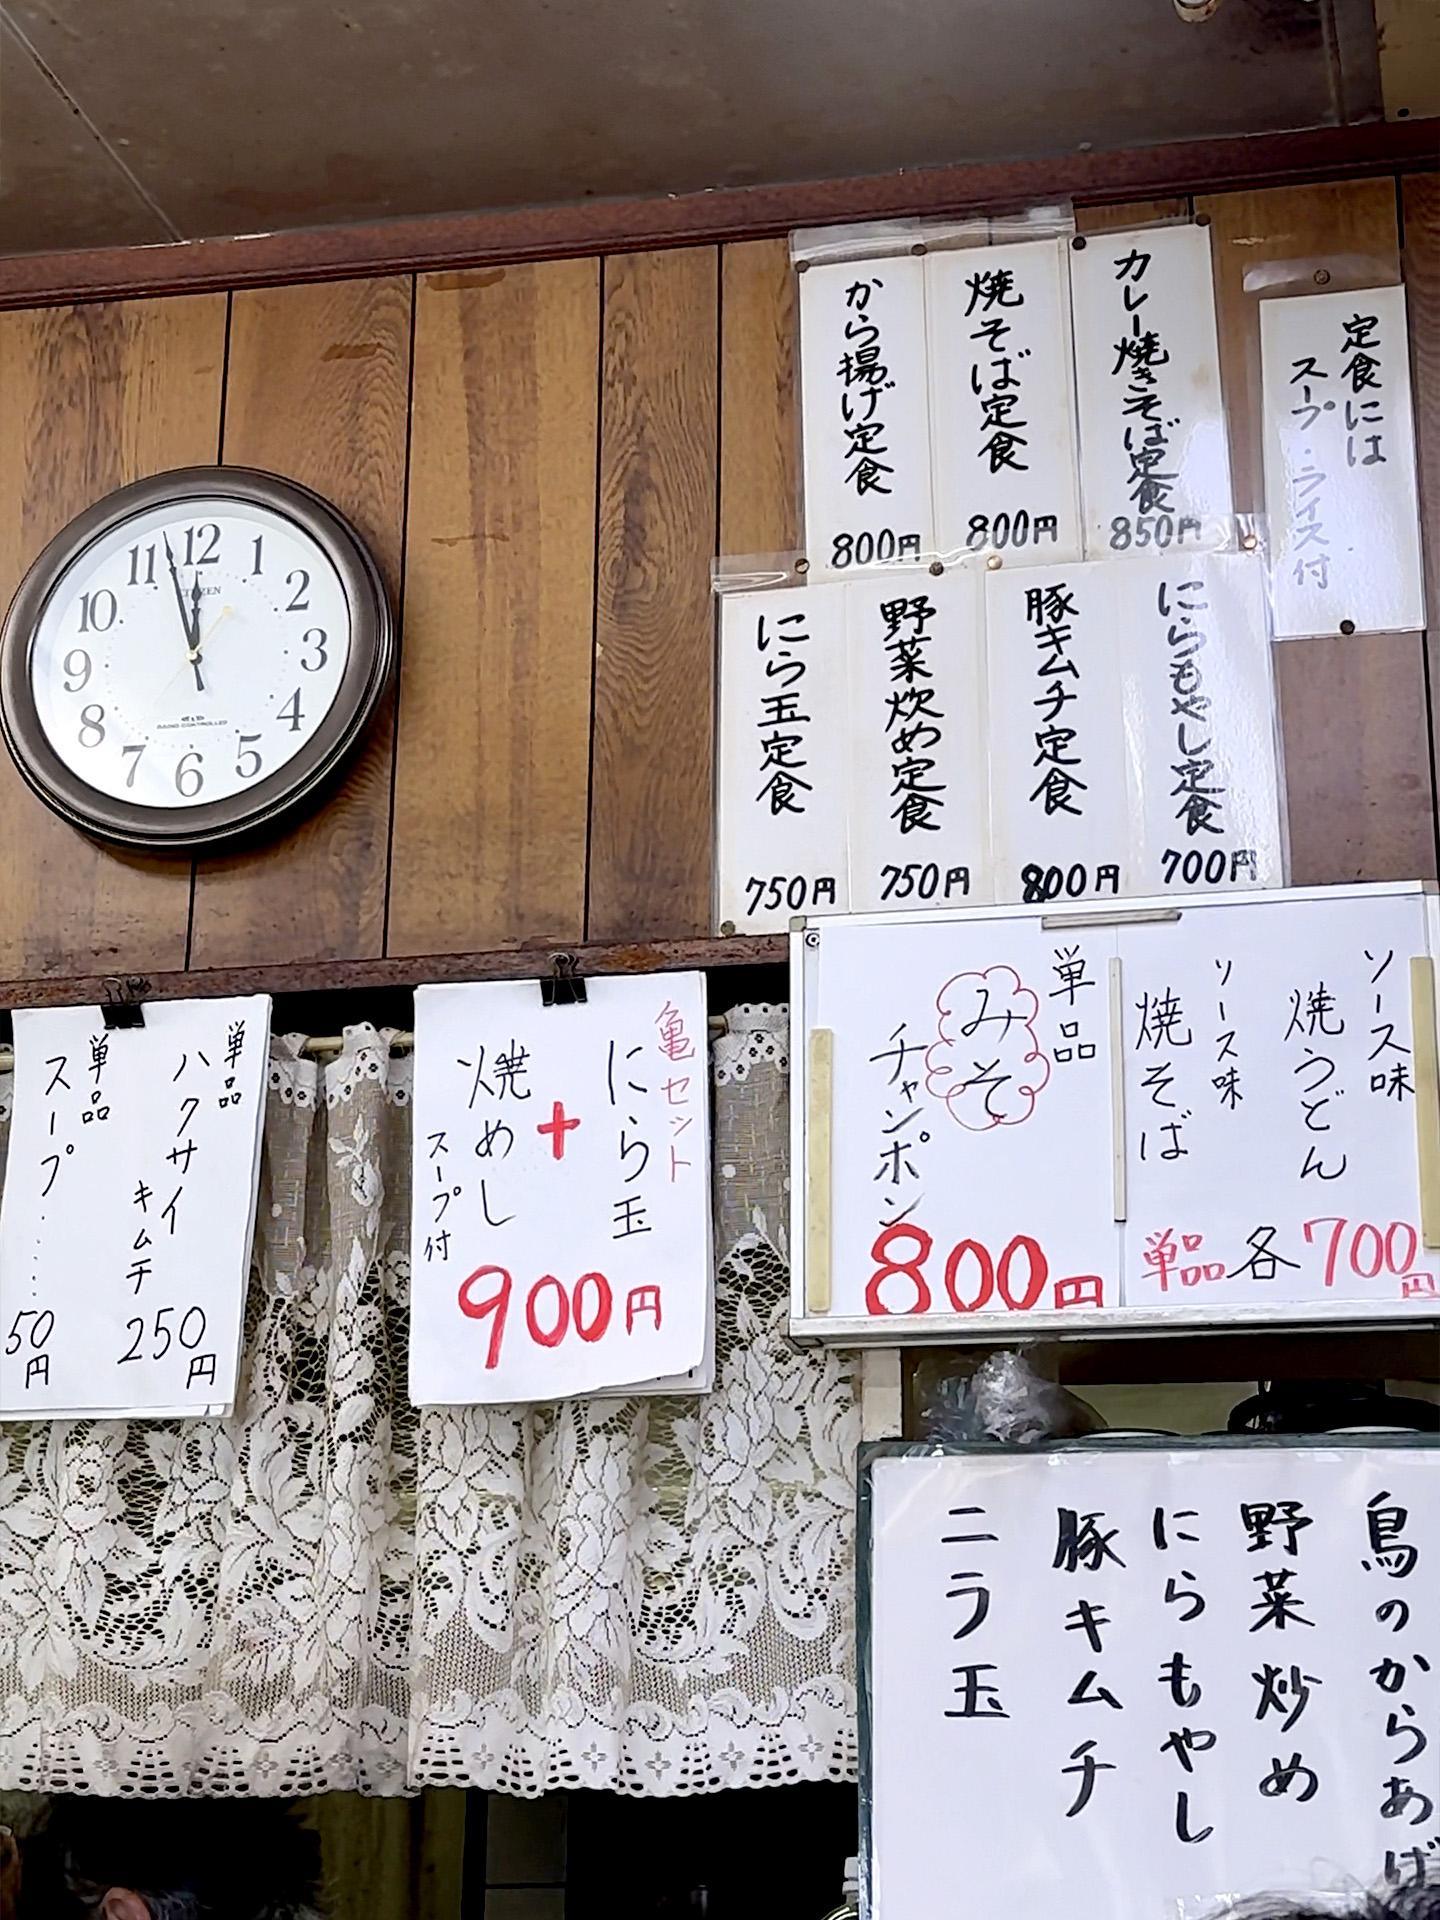 定食には
スープ・ライス付
カレー焼きそば定食
850円
焼そば定食
800円
から揚げ定食
800円
にらもやし定食
700円
豚キムチ定食
800円
野菜炊め定食
750円
にら玉定食
750円
12
1
2
3
4
5
6
7
8
9
10
11
CITIZEN
RADIO CONTROLLED
ソース味
焼うどん
ソース味
焼そば
単品各700円
単品
みそ
チャンポン
800円
亀セット
にら玉
+
焼めし
スープ付
900円
単品
ハクサイ
キムチ
250円
単品
スープ......
50円
鳥のからあげ
野菜炒め
にらもやし
豚キムチ
ニラ玉